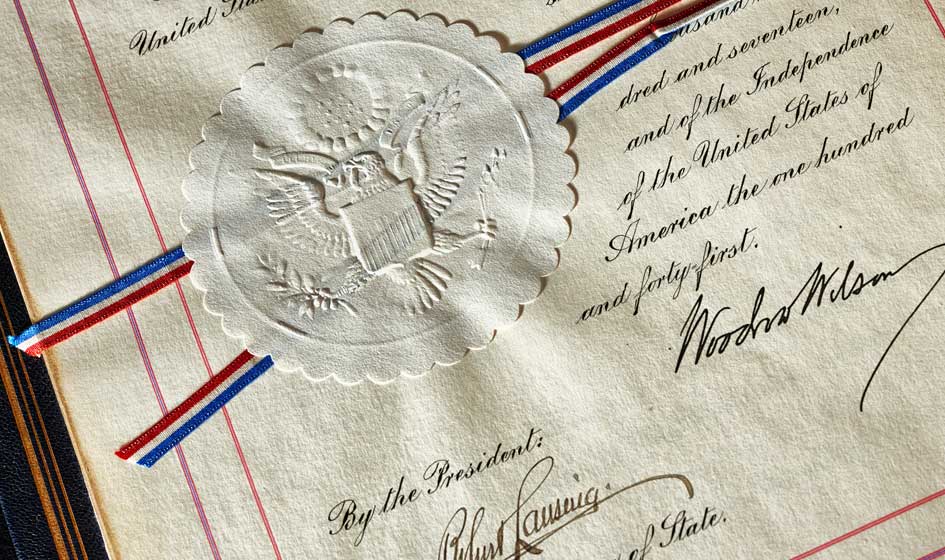 United
dred and seventeen,
and of the Independence
of the United States of
America the one hundred
and forty-first.
Woodrow Wilson
By the President:
Robert Lansing.
of State.